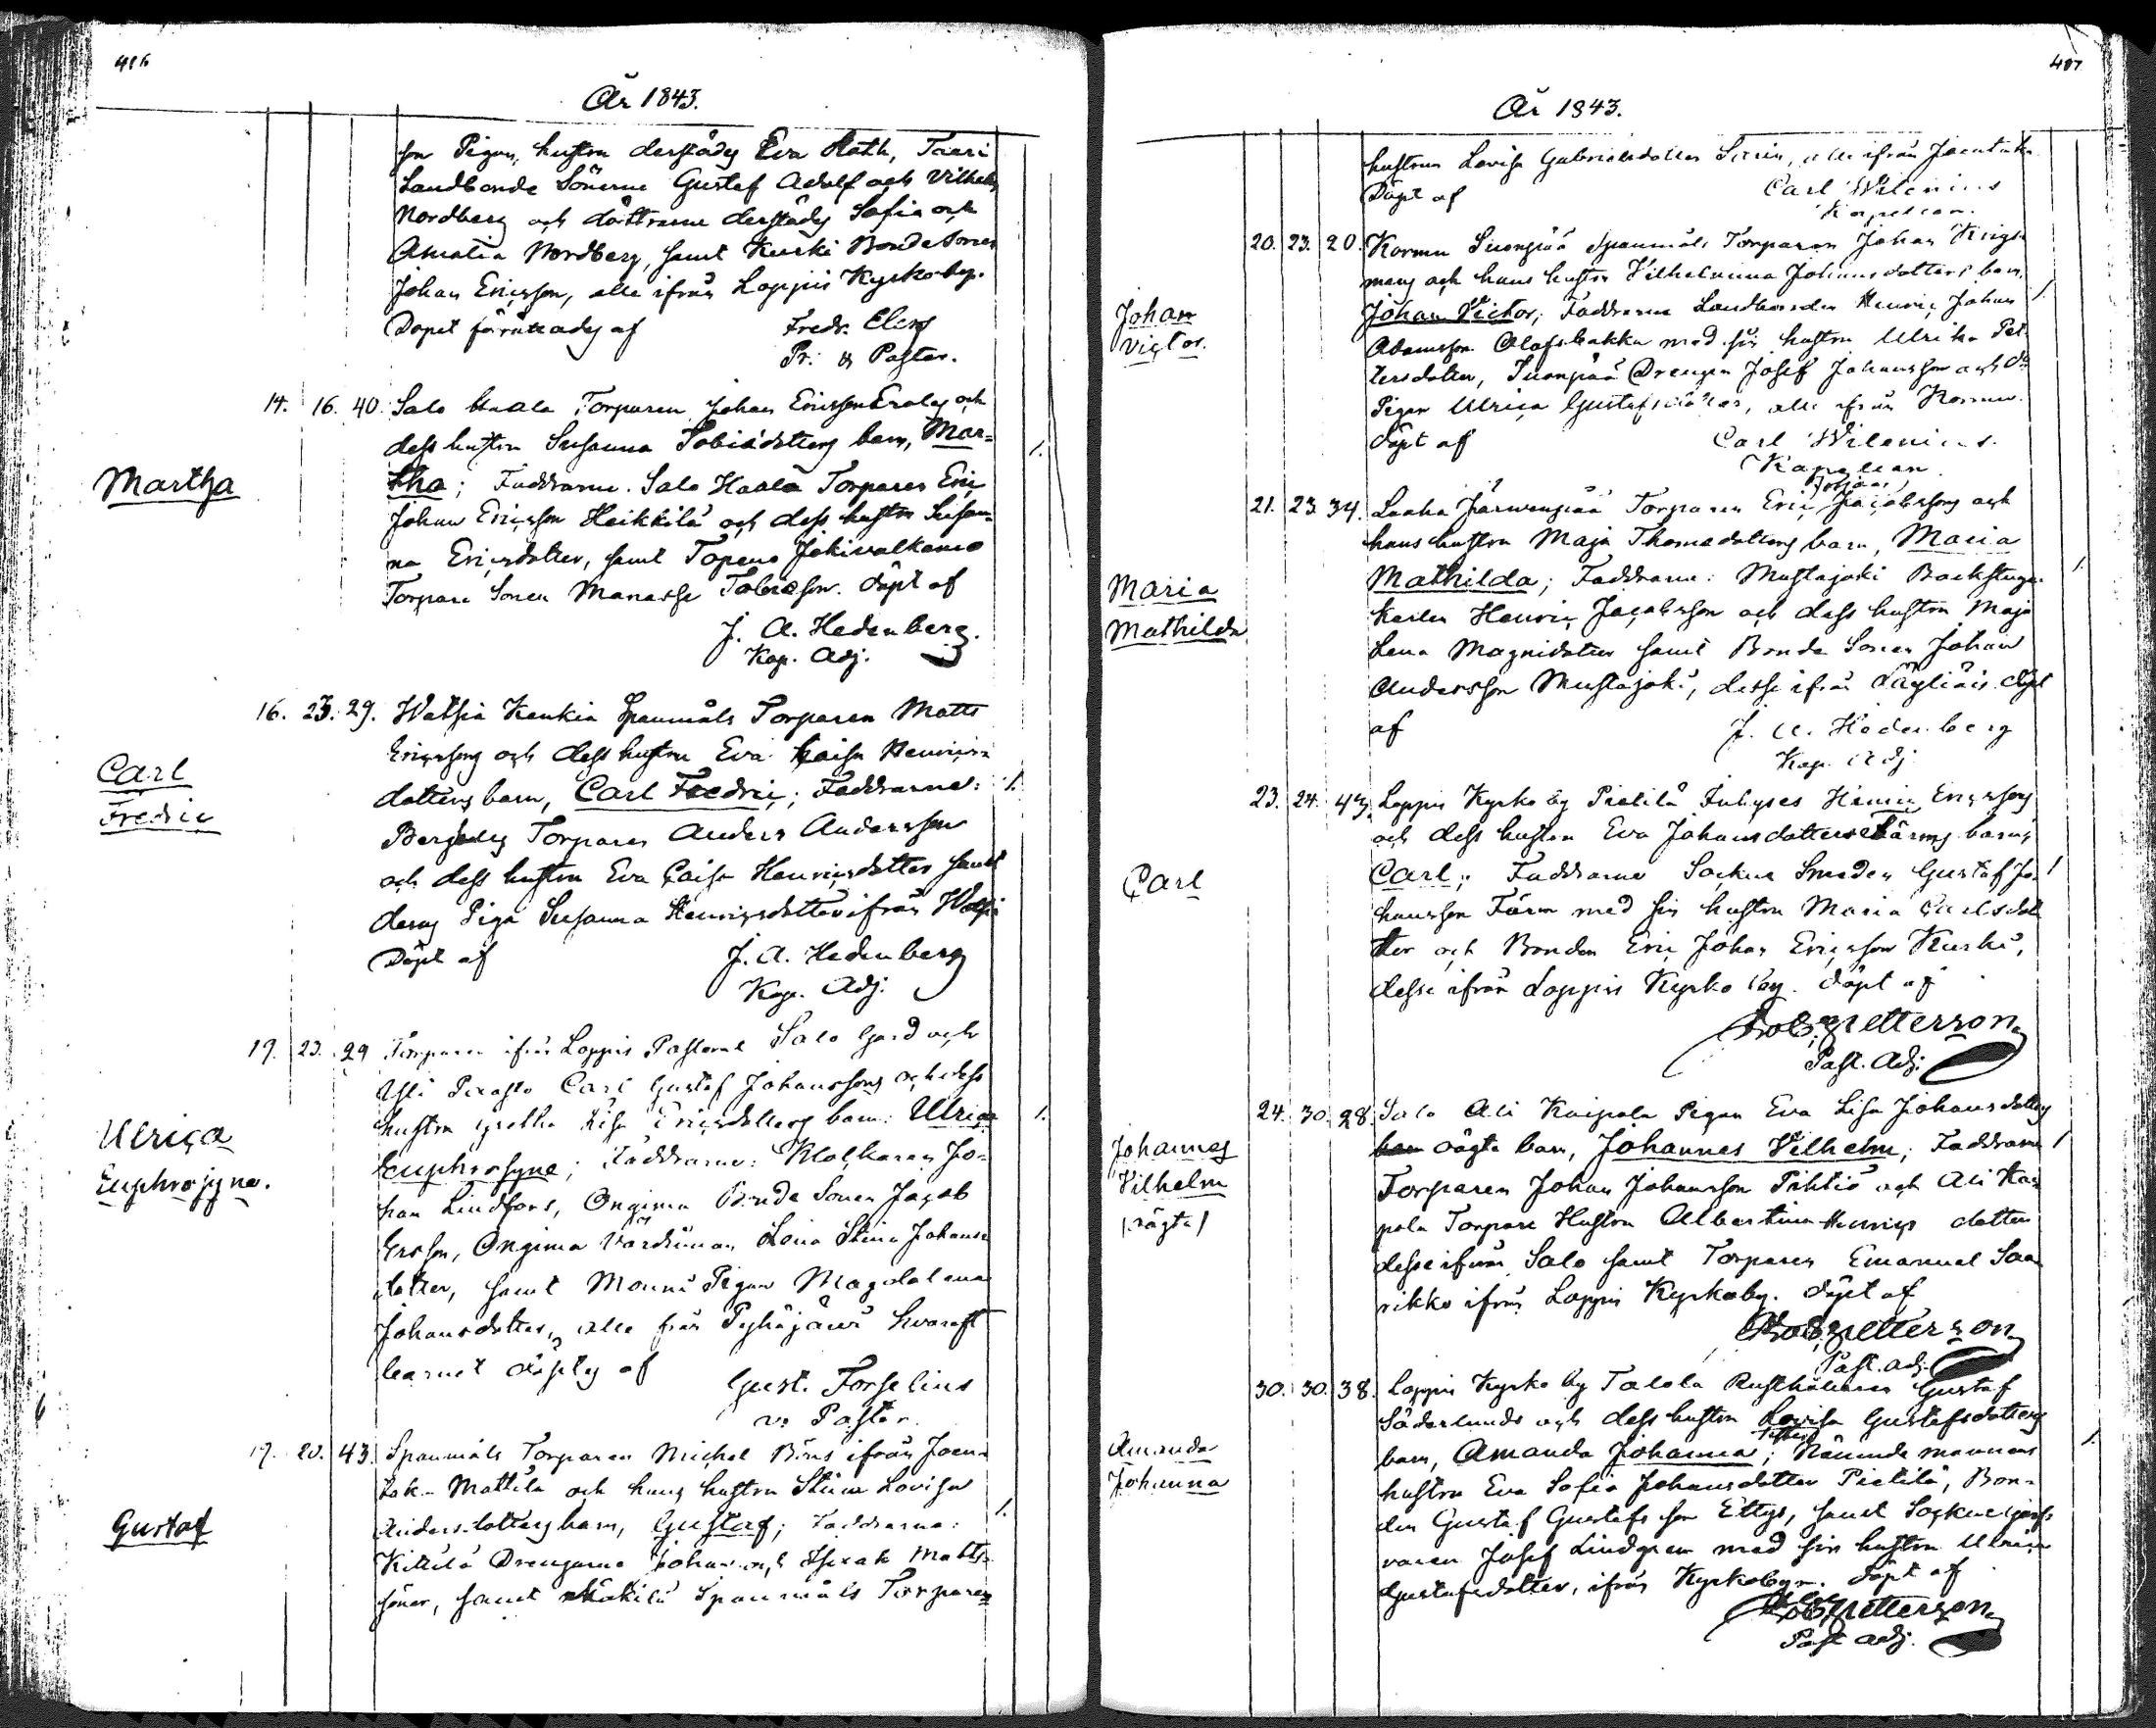 486
År 1843.
son Pigan, hustru derstädes Eva Roth, Taari
Landbonde Sönerne Gustaf Adolf och Vilhelm
Nordberg och döttrarne derstädes Sofia och
Amalia Nordberg, samt Kurki Bonde Sonen
Johan Ericsson, alla ifrån Loppis Kyrkoby.
Dopet förrättades af Fredr. Elers
Pr. & Pastor.
Martha
14. 16. 40. Salo Haala Torparen Johan Ericsson och
dess hustru Susanna Tobiædotters barn, Mar=
tha; Faddrarne. Salo Haala Torparen Eric
Johan Ericsson Heikkilä och dess hustru Susan=
na Ericsdotter, samt Topeno Jokivalkama
Torpare Sonen Manasse Tobiæson. döpt af
J. A. Hedenberg.
Kap. Adj.
Carl
Fredric
16. 23. 29. Watsia Kaukia Spanmåls Torparen Matts
Ericssons och dess hustru Eva Caisa Henrics=
dotters barn, Carl Fredric; Faddrarne: 1.
Torparen Anders Andersson
och dess hustru Eva Caisa Henricsdotter samt
deras Piga Susanna Henricsdotter ifrån
Döpt af J. A. Hedenberg
Kap. Adj.
Ulrica
Euphrosyne.
19. 23. 29 Torparen ifrån Loppis Pastorat Salo Gård och
Carl Gustaf Johanssons och dess
hustru Greta Lisa Ericsdotters barn: Ulrica 1.
Euphrosyne; Faddrarne: Klockaren Jo=
han Lindfors, Ongima Bonde Sonen Jacob
Ersson, Ongima Värdinnan Lena Stina Johans
dotter, samt Monni Pigan Magdalena
Johansdotter, alla från Pyhäjärvi hvarest
barnet döptes af
Gust. Forselius
v. Pastor.
Gustaf
19. 20. 43. Spanmåls Torparen Michel Böös ifrån Joen=
taka Mattila och hans hustru Stina Lovisa
Andersdotters barn, Gustaf; Faddrarne: 1.
Kittilä Drengarne Johan och Isaak Matts=
söner, samt Mäkilä Spanmåls Torparen
487
År 1843.
hustrun Lovisa Gabrielsdotter, alla ifrån Joentaka
Döpt af Carl Wilenius
Kapellan.
Johan
Victor.
20. 23. 20. Kormu Suonpää Spanmåls Torparen Johan
mans och hans hustru Vilhelmina Johansdotters barn
Johan Victor; Faddrarne Landbonden Henric Johan 1
Adamsson Olofsbakka med sin hustru Ulrika Pet
tersdotter, Suonpää Drengen Josef Johansson och do
Pigan Ulrica Gustafsdotter, alla ifrån Kormu
döpt af Carl Wilenius.
Kapellan
Maria
Mathilda
21. 23 34. Järvenpää Torparen Eric Jacobssons och
hans hustru Maja Thomædotters barn, Maria
Mathilda; Faddrarne: Mustajoki Backstugu
karlen Henric Jacobsson och dess hustru Maja
Lena Magnidotter samt Bonde Sonen Johan
Andersson Mustajoki, desse ifrån Läyliäis. döpt
af J. A. Hedenberg
Kap. Adj
Carl
23. 24. 43. Loppis Kyrko by Pietilä Inhyses Henric Ericssons
och dess hustru Eva Johansdotters barn,
Carl; Faddrarne Sockne Smeden Gustaf Jo= 1
hansson Färm med sin hustru Maria Carlsdot
ter och Bonden Eric Johan Ericsson Kurki,
desse ifrån Loppis Kyrko by. döpt af
Rob. Zetterson
Past. Adj.
Johannes
Vilhelm
(oägta)
24. 30. 28. Salo Ali Kaipola Pigan Eva Lisa Johansdotters
oägta barn, Johannes Vilhelm; Faddrarne 1
Torparen Johan Johansson Pihtiö och Ali Kai
pola Torpare Hustrun Albertina Henrics dotter
desse ifrån Salo samt Torparen Emanuel Saa
rikko ifrån Loppis Kyrkoby. döpt af
Rob. Zetterson
Past. adj.
Amanda
Johanna
30. 30. 38. Loppis Kyrko by Talola Rusthållaren Gustaf
Söderlunds och dess hustru Lovisa Gustafsdotters
barn, Amanda Johanna; Nämnde mannens 1.
hustru Eva Sofia Johansdotter Pietilä, Bon=
den Gustaf Gustafsson Ettys, samt Sockne
varen Josef Lindgren med sin hustru Ulrica
Gustafsdotter, ifrån Kyrkobyn. döpt af
Rob. Zetterson
Past adj.